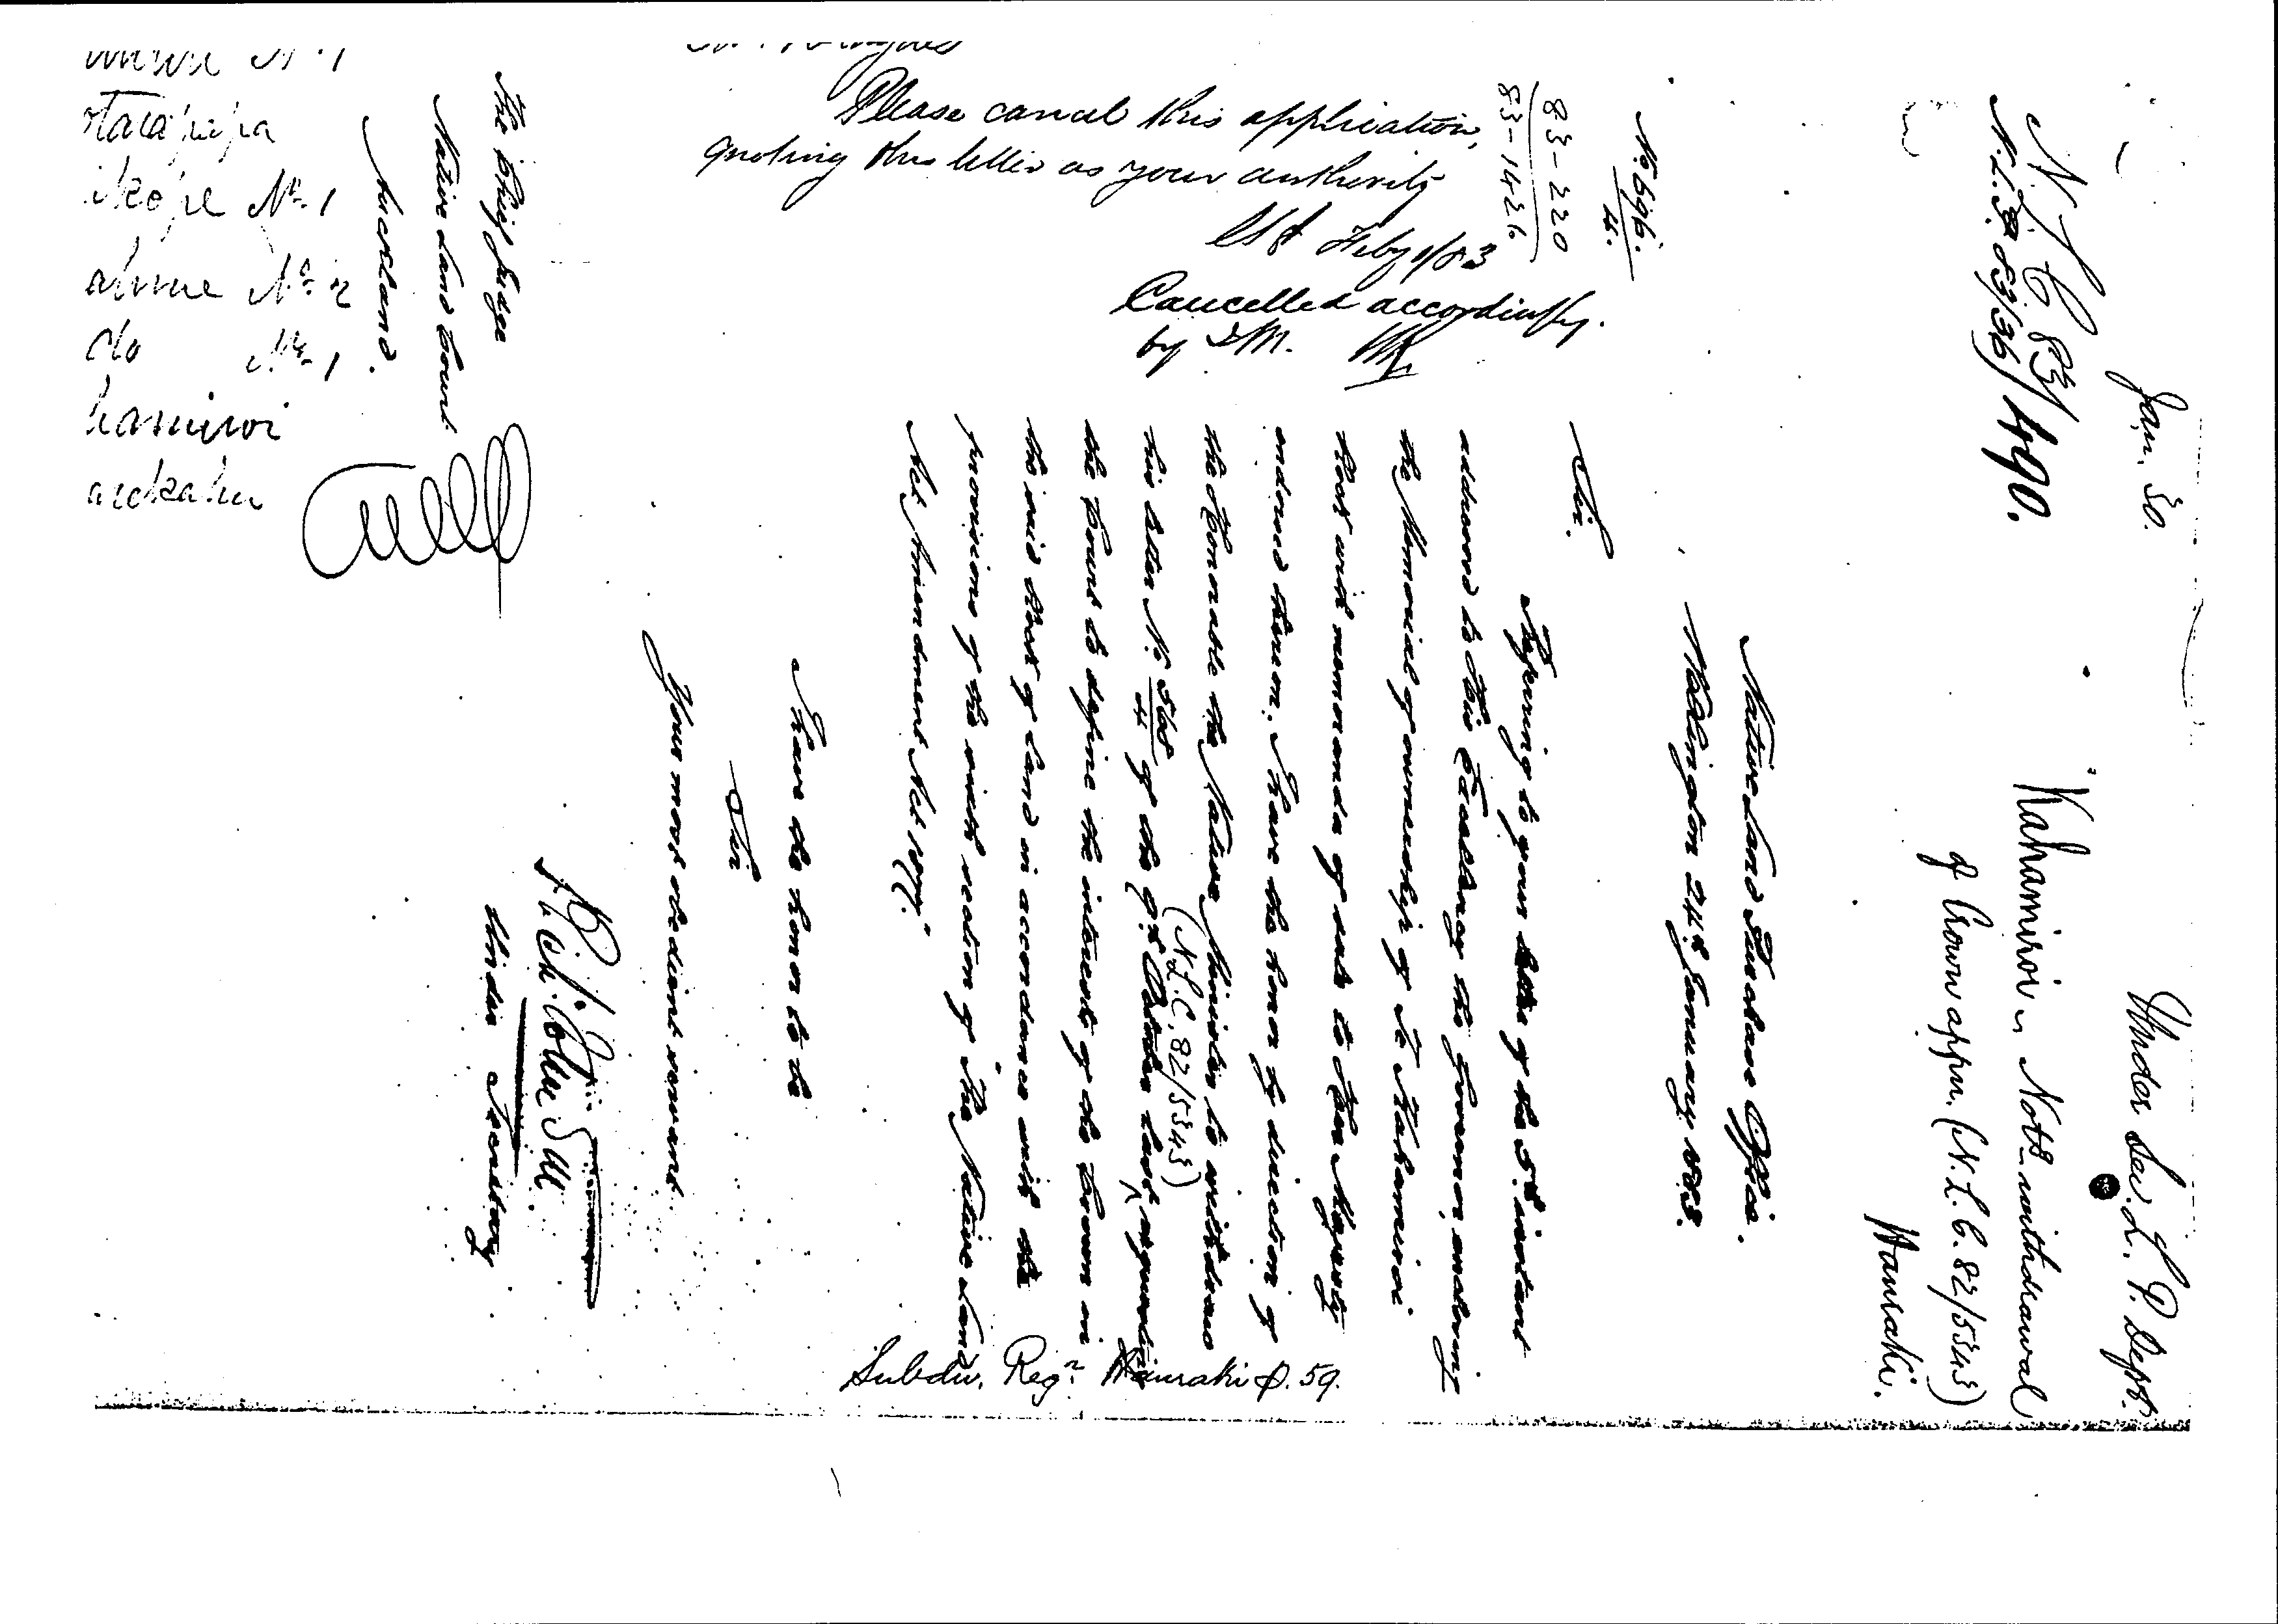 Jan. 30.
N.L.C 83/490.
N.L.P 83/36
Under Sec. L. P. Dept.
"Kahamiroi" Notn. withdrawal
of Crown appn. (N.L.C. 82/5343)
Hauraki.
No. 696.
4.
83-220
83-1426
Native Land Purchase Office.
Wellington 24th January, 1883.
Sir.
Referring to your letter of the 5th instant
addressed to His Excellency the Governor, enclosing
the Memorial of ownership of Te Kahamiroi
Block with memoranda of sale to Her Majesty
endorsed thereon. I have the honor by direction of
the Honorable the Native Minister to withdraw
his letter No.
4
of the 9th October last, requesting
(N.L.C. 82/5343)
the Court to define the interests of the Crown in
the said Block of land in accordance with the
provisions of the sixth section of The Native Land
Act Amendment Act 1877.
I have the honor to be
Sir
Your most obedient servant.
Under Secretary
The Chief Judge
Native Land Court
Auckland.
Please cancel this application,
quoting this letter as your authority
Feby 1/83
Cancelled accordingly.
by
Subdn. Regn. Hauraki p. 59.
No. 1
No. 1
No. 2
do No. 1